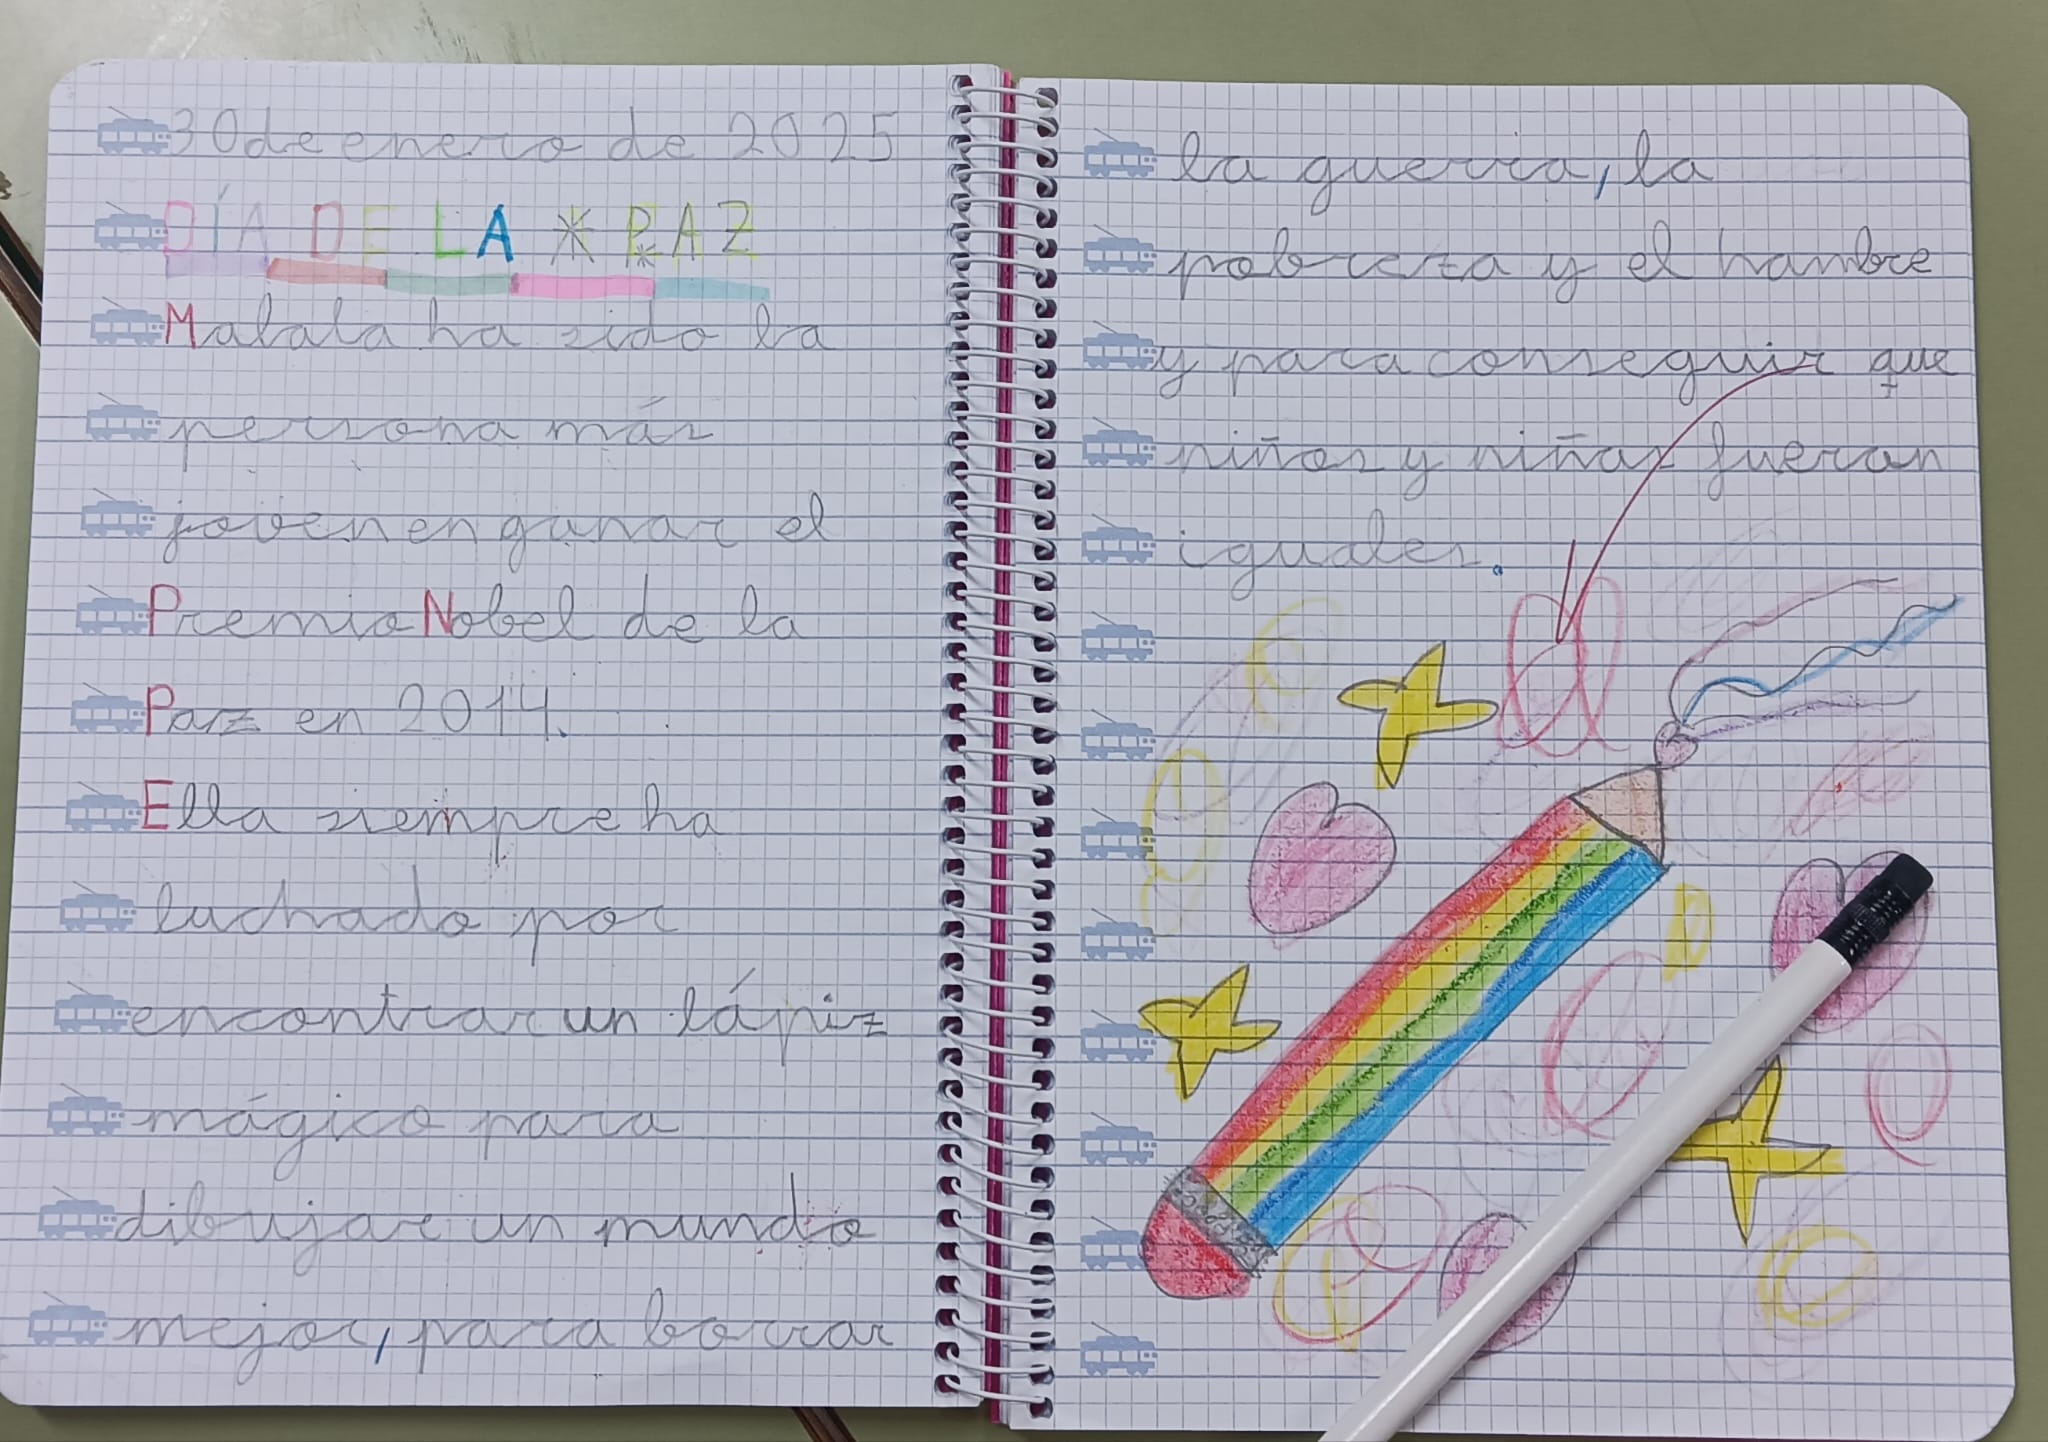 30 de enero de 2025
DÍA DE LA PAZ
Malala ha sido la
persona más
joven en ganar el
Premio Nobel de la
Paz en 2014.
Ella siempre ha
luchado por
encontrar un lápiz
mágico para
dibujar un mundo
mejor, para borrar
la guerra, la
pobreza y el hambre
y para conseguir que
niños y niñas fueran
iguales.